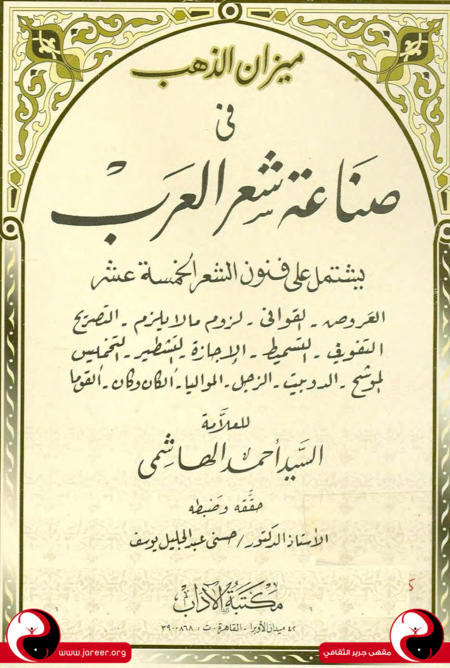 ميزان الذهب
في
صناعة شعر العرب
يشتمل على فنون الشعر الخمسة عشر
العروض - القوافي - لزوم مالا يلزم - التصريح
التفويف - التسميط - الإجازة - التشطير - التخميس
الموشح - الدوبيت - الزجل - المواليا - الكان وكان - القوما
للعلامة
السيد أحمد الهاشمي
حققه وضبطه
الأستاذ الدكتور / حسني عبد الجليل يوسف
مكتبة الآداب
٤٢ ميدان الأوبرا - القاهرة - ت : ٣٩٠٠٨٦٨
www.jareer.org
مقهى جرير الثقافي